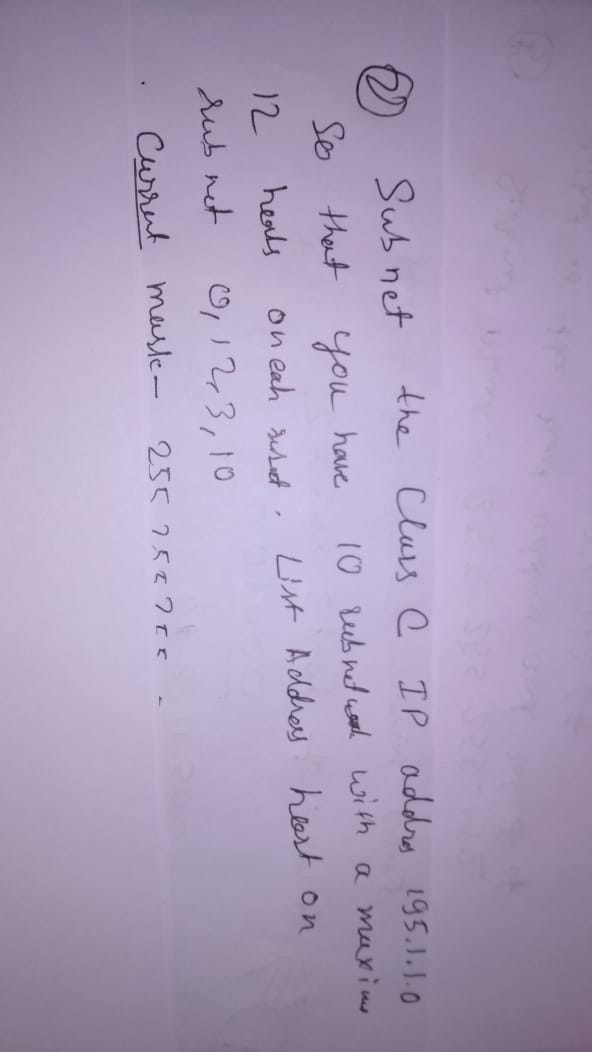 ② Subnet the Class C IP addres 195.1.1.0
So that you have 10 subnetwork with a maxim
12 hosts on each subnet. List Address host on
subnet 0, 1 2, 3, 10
. Current mask - 255 255 255 .